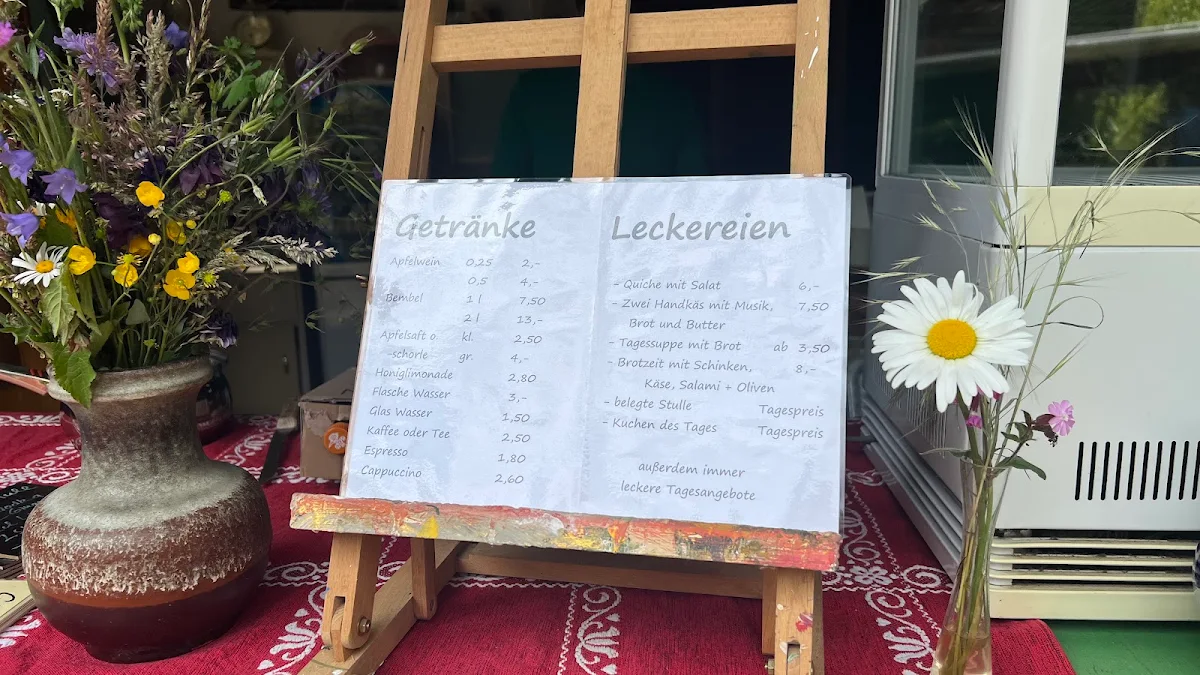 Getränke
Apfelwein 0,25 2,-
0,5 4,-
Bembel 1 l 7,50
2 l 13,-
Apfelsaft o. kl. 2,50
-schorle gr. 4,-
Honiglimonade 2,80
Flasche Wasser 3,-
Glas Wasser 1,50
Kaffee oder Tee 2,50
Espresso 1,80
Cappuccino 2,60
Leckereien
- Quiche mit Salat 6,-
- Zwei Handkäs mit Musik, 7,50
Brot und Butter
- Tagessuppe mit Brot ab 3,50
- Brotzeit mit Schinken, 8,-
Käse, Salami + Oliven
- belegte Stulle Tagespreis
- Kuchen des Tages Tagespreis
außerdem immer
leckere Tagesangebote